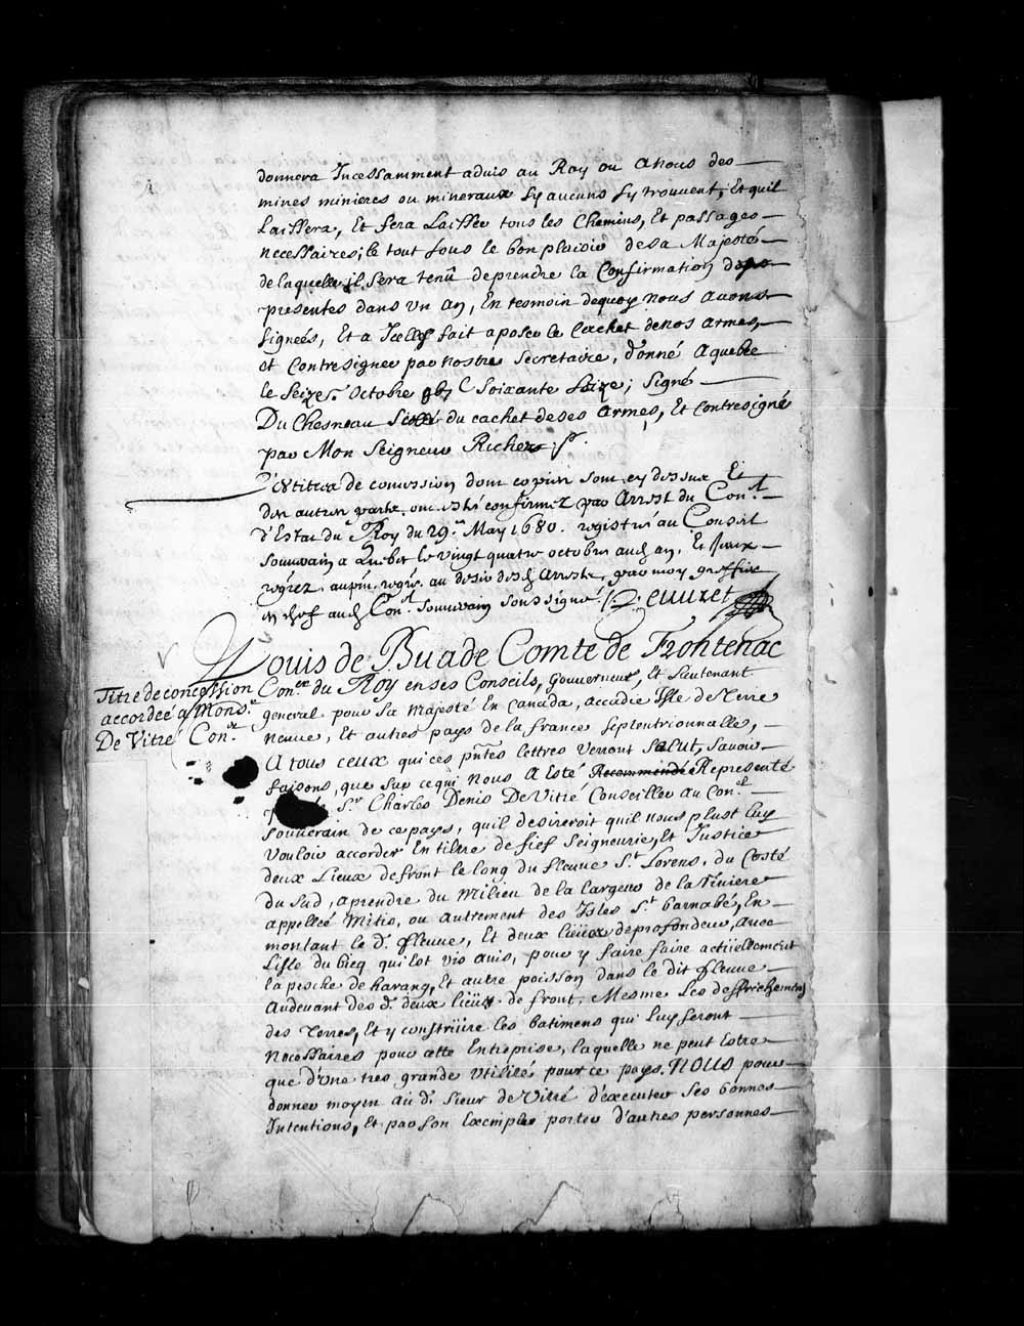 donnera Incessamment aduis au Roy ou a nous des
mines minieres ou mineraux sy aucuns sy trouuent, Et quil
Laissera, Et fera Laisser tous les Chemins, Et passages
necessaires; le tout sous le bon plaisir de sa Majesté
de laquelle il sera tenû de prendre la Confirmation des
presentes dans un an, En tesmoin de quoy nous auons
signées, Et a Icelles fait aposer le Cachet de nos armes,
et Contresigner par nostre Secretaire, donné a quebec
le seize.e Octobre Soixante seize; signé
Du Chesneau Scellé du cachet de ses armes, Et contresigné
par Mon Seigneur Richer
Les titres de concession dont copies sont cy dessus Et
des autres parts, ont esté confirmez par Arrest du Con.el
d'Estat du Roy du 29.e May 1680. registré au Conseil
Souuerain a Quebec le vingt quatre octobre aud an, Et
au desir desd Arrests, par moy greffier
en chef aud Con.el Souuerain soussigné. Peuuret
Louis de Buade Comte de Frontenac
Titre de concession
accordeé a Mons.r
De Vitré Con.er
Con.er du Roy en ses Conseils, Gouuerneur, Et Lieutenant
general pour sa Majesté En Canada, accadie Isle de Terre
neuue, Et autres pays de la france septentrionnalle,
A tous ceux qui ces pntes lettres verront Salut, sauoir
faisons, que sur ce qui Nous a Esté Recommendé Representé
S.r Charles Denis De Vitré Conseiller au Con.el
Souuerain de ce pays, quil desireroit quil nous plust Luy
Vouloir accorder En tiltre de fief Seigneurie, Et Justice
deux Lieux de front le long du fleuue S.t Lorens, du Costé
du Sud, a prendre du Milieu de la largeur de la Riuiere
appelleé Mitis, ou autrement des Isles S.t barnabé, En
montant le d. fleuue, Et deux lieües de profondeur, auec
L'isle du bicq qui Est vis auis, pour y faire faire actüellement
la pesche de harang, Et autre poisson dans le dit fleuue
Audeuant des d. deux lieües de front, Mesme Les deffrichemens
des Terres, Et y constrüire les batimens qui Luy seront
Necessaires pour cette Entreprise, laquelle ne peut Estre
que d'Une tres grande Utilité pour ce pays. NOUS pour
donner moyen au d. Sieur de Vitré d'éxecuter ses bonnes
Intentions, Et par son Exemple porter d'autres personnes